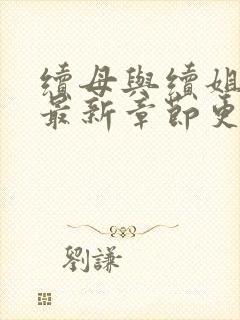 續母與續姐
最新章節更
劉謙